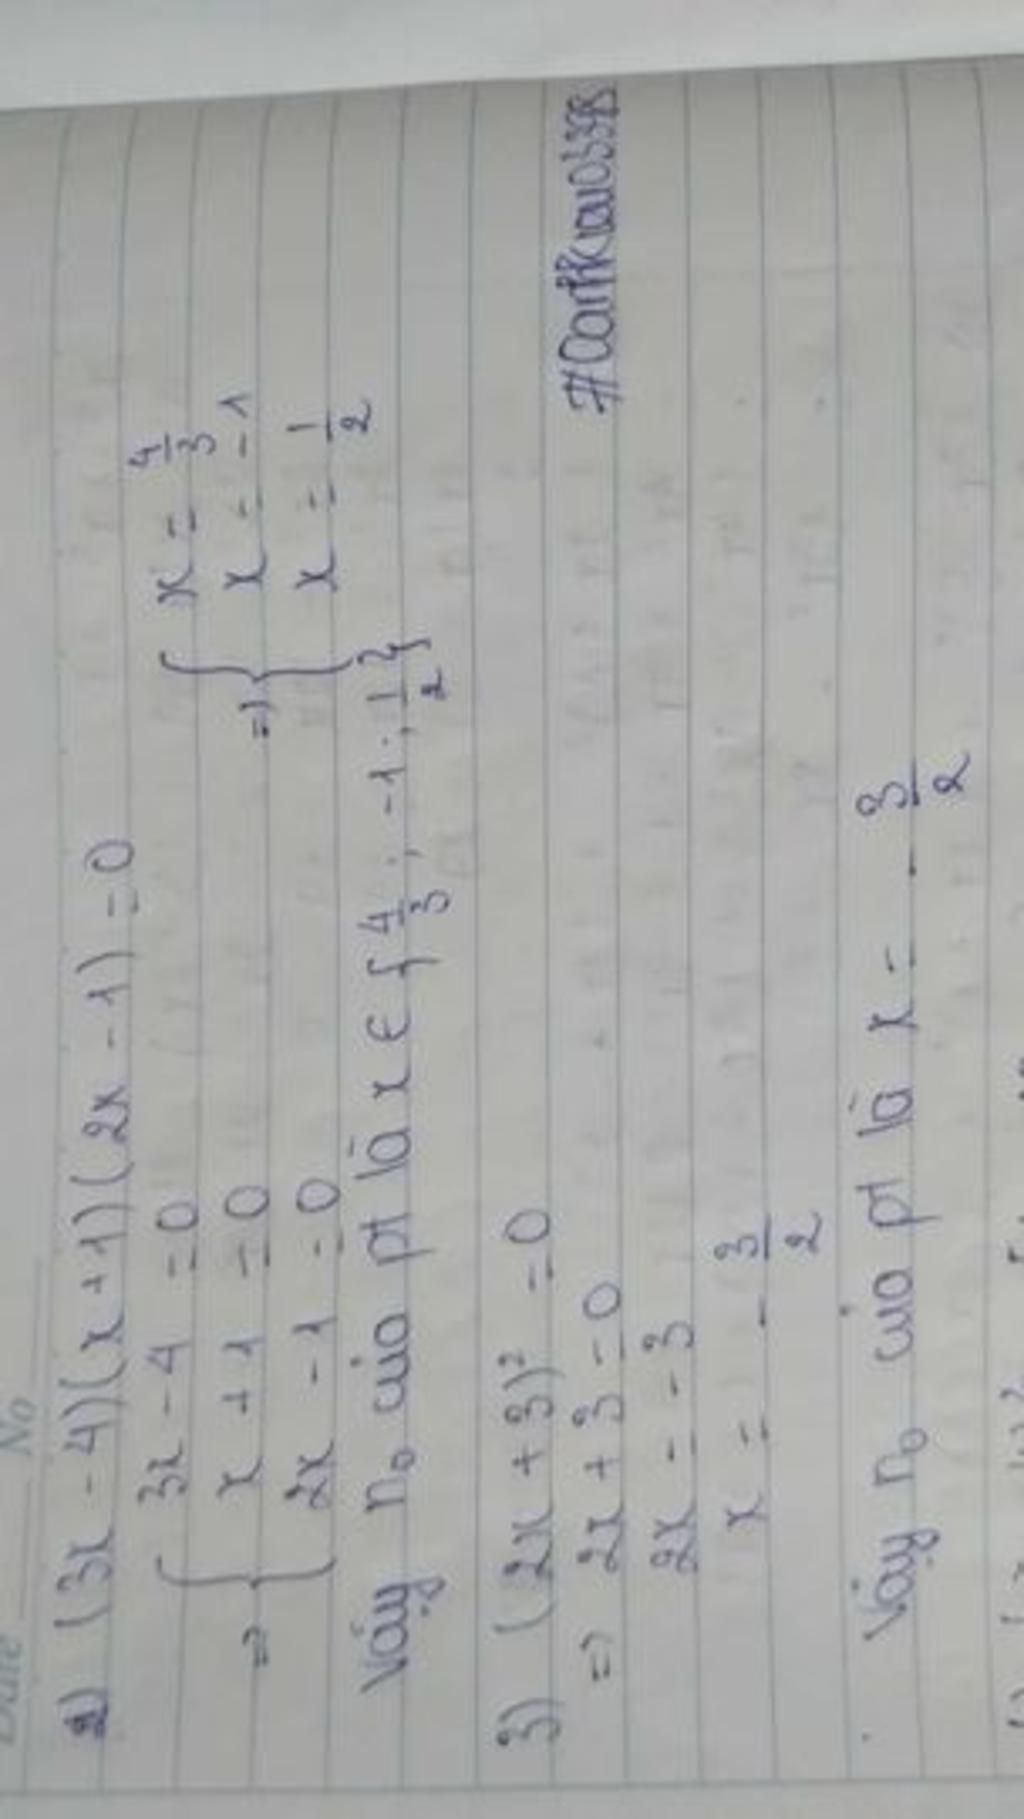 Date No
2) (3x - 4)(x + 1)(2x - 1) = 0
=> { 3x - 4 = 0 => { x = 4/3
x + 1 = 0 x = -1
2x - 1 = 0 x = 1/2
Vậy n₀ của pt là x ∈ { 4/3 ; -1 ; 1/2 }
3) (2x + 3)² = 0
=> 2x + 3 = 0
2x = -3
x = - 3/2
Vậy n₀ của pt là x = - 3/2